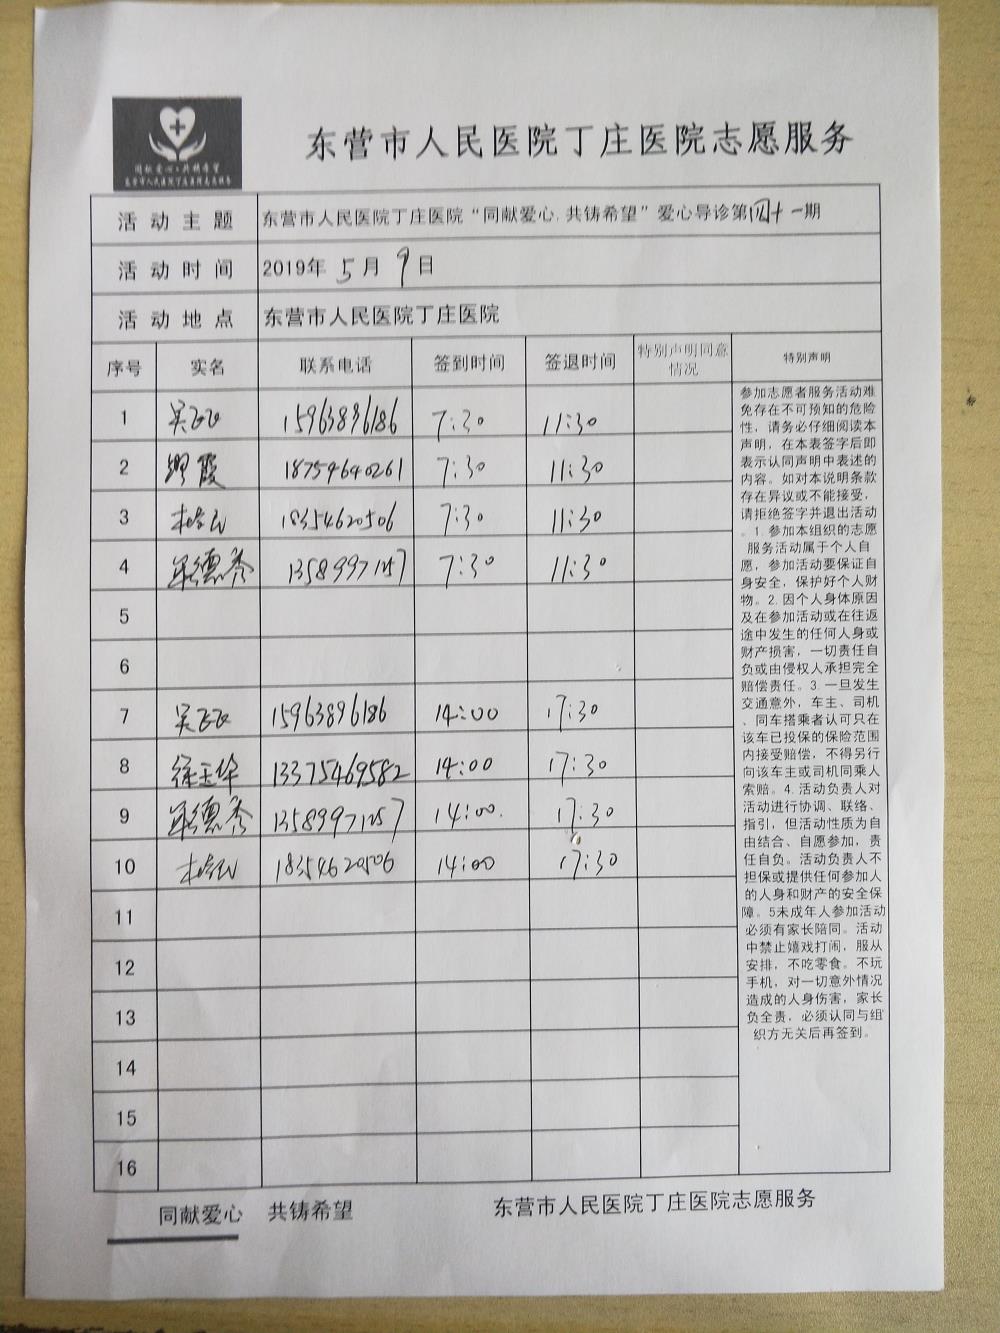 同献爱心·共铸希望
东营市人民医院丁庄医院志愿服务
东营市人民医院丁庄医院志愿服务
活动主题 东营市人民医院丁庄医院“同献爱心,共铸希望”爱心导诊第四十一期
活动时间 2019年 5 月 9 日
活动地点 东营市人民医院丁庄医院
序号 实名 联系电话 签到时间 签退时间 特别声明同意情况 特别声明
1 吴飞飞 15963896186 7:30 11:30
2 霞 18759640261 7:30 11:30
3 18354620506 7:30 11:30
4 德秀 13589971057 7:30 11:30
5
6
7 吴飞飞 15963896186 14:00 17:30
8 徐玉华 13375469582 14:00 17:30
9 德秀 13589971057 14:00 17:30
10 18354620506 14:00 17:30
11
12
13
14
15
16
参加志愿者服务活动难
免存在不可预知的危险
性，请务必仔细阅读本
声明，在本表签字后即
表示认同声明中表述的
内容。如对本说明条款
存在异议或不能接受，
请拒绝签字并退出活动
。1.参加本组织的志愿
服务活动属于个人自
愿，参加活动要保证自
身安全，保护好个人财
物。2.因个人身体原因
及在参加活动或在往返
途中发生的任何人身或
财产损害，一切责任自
负或由侵权人承担完全
赔偿责任。3.一旦发生
交通意外，车主、司机
、同车搭乘者认可只在
该车已投保的保险范围
内接受赔偿，不得另行
向该车主或司机同乘人
索赔。4.活动负责人对
活动进行协调、联络、
指引，但活动性质为自
由结合、自愿参加，责
任自负。活动负责人不
担保或提供任何参加人
的人身和财产的安全保
障。5未成年人参加活动
必须有家长陪同。活动
中禁止嬉戏打闹，服从
安排，不吃零食。不玩
手机，对一切意外情况
造成的人身伤害，家长
负全责，必须认同与组
织方无关后再签到。
同献爱心 共铸希望 东营市人民医院丁庄医院志愿服务